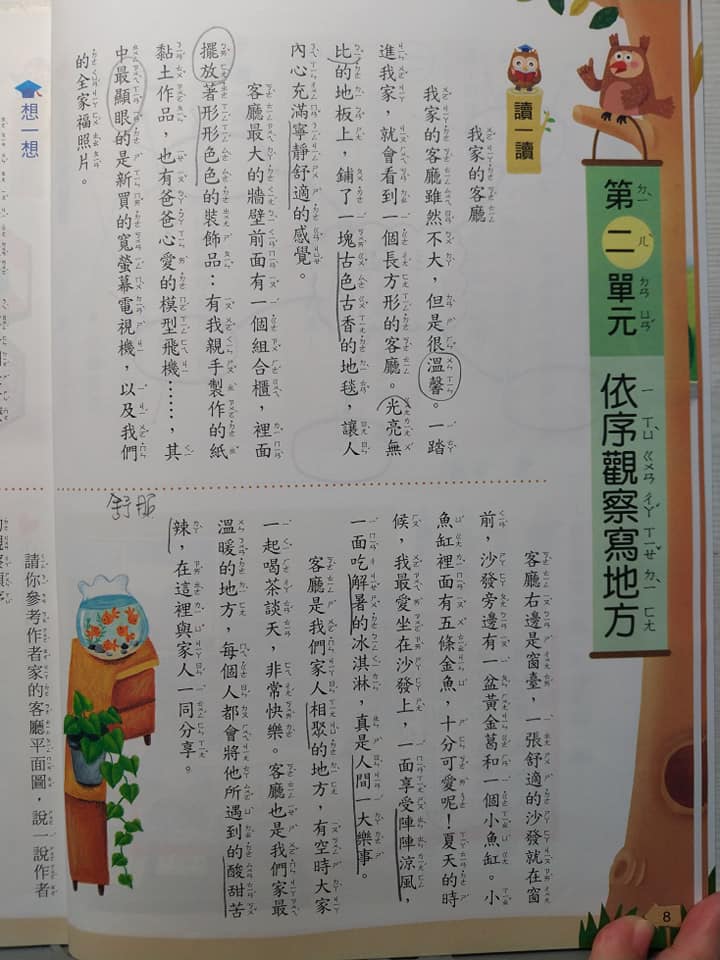 第二單元
依序觀察寫地方
讀一讀
我家的客廳
我家的客廳雖然不大，但是很溫馨。一踏
進我家，就會看到一個長方形的客廳。光亮無
比的地板上，鋪了一塊古色古香的地毯，讓人
內心充滿寧靜舒適的感覺。
客廳最大的牆壁前面有一個組合櫃，裡面
擺放著形形色色的裝飾品：有我親手製作的紙
黏土作品，也有爸爸心愛的模型飛機……，其
中最顯眼的是新買的寬螢幕電視機，以及我們
的全家福照片。
客廳右邊是窗臺，一張舒適的沙發就在窗
前，沙發旁邊有一盆黃金葛和一個小魚缸。小
魚缸裡面有五條金魚，十分可愛呢！夏天的時
候，我最愛坐在沙發上，一面享受陣陣涼風，
一面吃解暑的冰淇淋，真是人間一大樂事。
客廳是我們家人相聚的地方，有空時大家
一起喝茶談天，非常快樂。客廳也是我們家最
溫暖的地方，每個人都會將他所遇到的酸甜苦
辣，在這裡與家人一同分享。
舒服
8
想一想
請你參考作者家的客廳平面圖，說一說作者